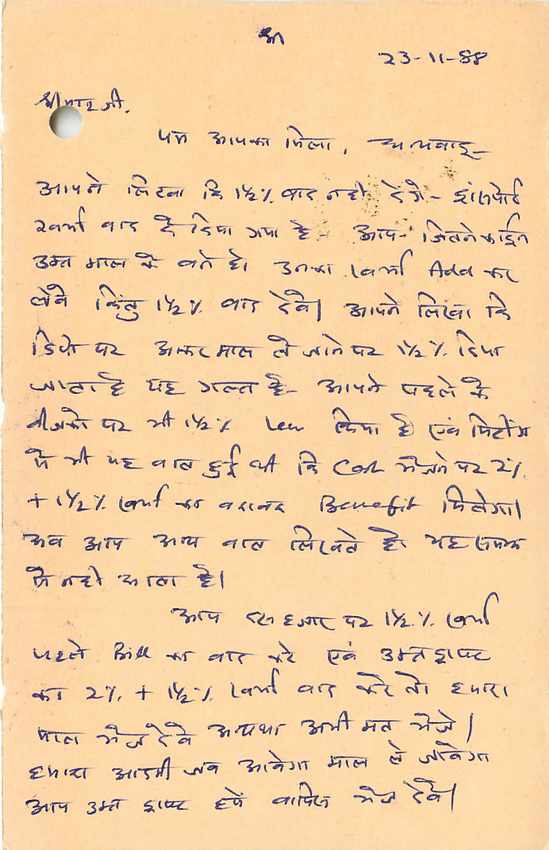 श्री
23-11-88
श्रीमान जी,
पत्र आपका मिला, धन्यवाद -
आपने लिखा कि 1½% बाद नहीं देंगे -
खर्चा बाद दे दिया गया है - आप जितने
उक्त माल के बने है। उनका खर्चा Add कर
लेवे किंतु 1½% बाद देवें। आपने लिखा कि
डिपो पर आकर माल ले जाने पर 1½% दिया
जाता है यह गलत है - आपने पहले के
बीजको पर भी 1½% Less किया है एवं मिटींग
में भी यह बात हुई थी कि भेजने पर 2%
+ 1½% खर्चा का बराबर Benefit मिलेगा।
अब आप अन्य बात लिखते है। यह समझ
में नही आता है।
आप दस हजार पर 1½% खर्चा
पहले Bill का बाद करे एवं उक्त ड्राफ्ट
का 2% + 1½% खर्चा बाद करे तो हमारा
माल भेज देवे अन्यथा अभी मत भेजे।
हमारा आदमी जब आवेगा माल ले जावेगा
आप उक्त ड्राफ्ट हमें वापिस भेज देवें।